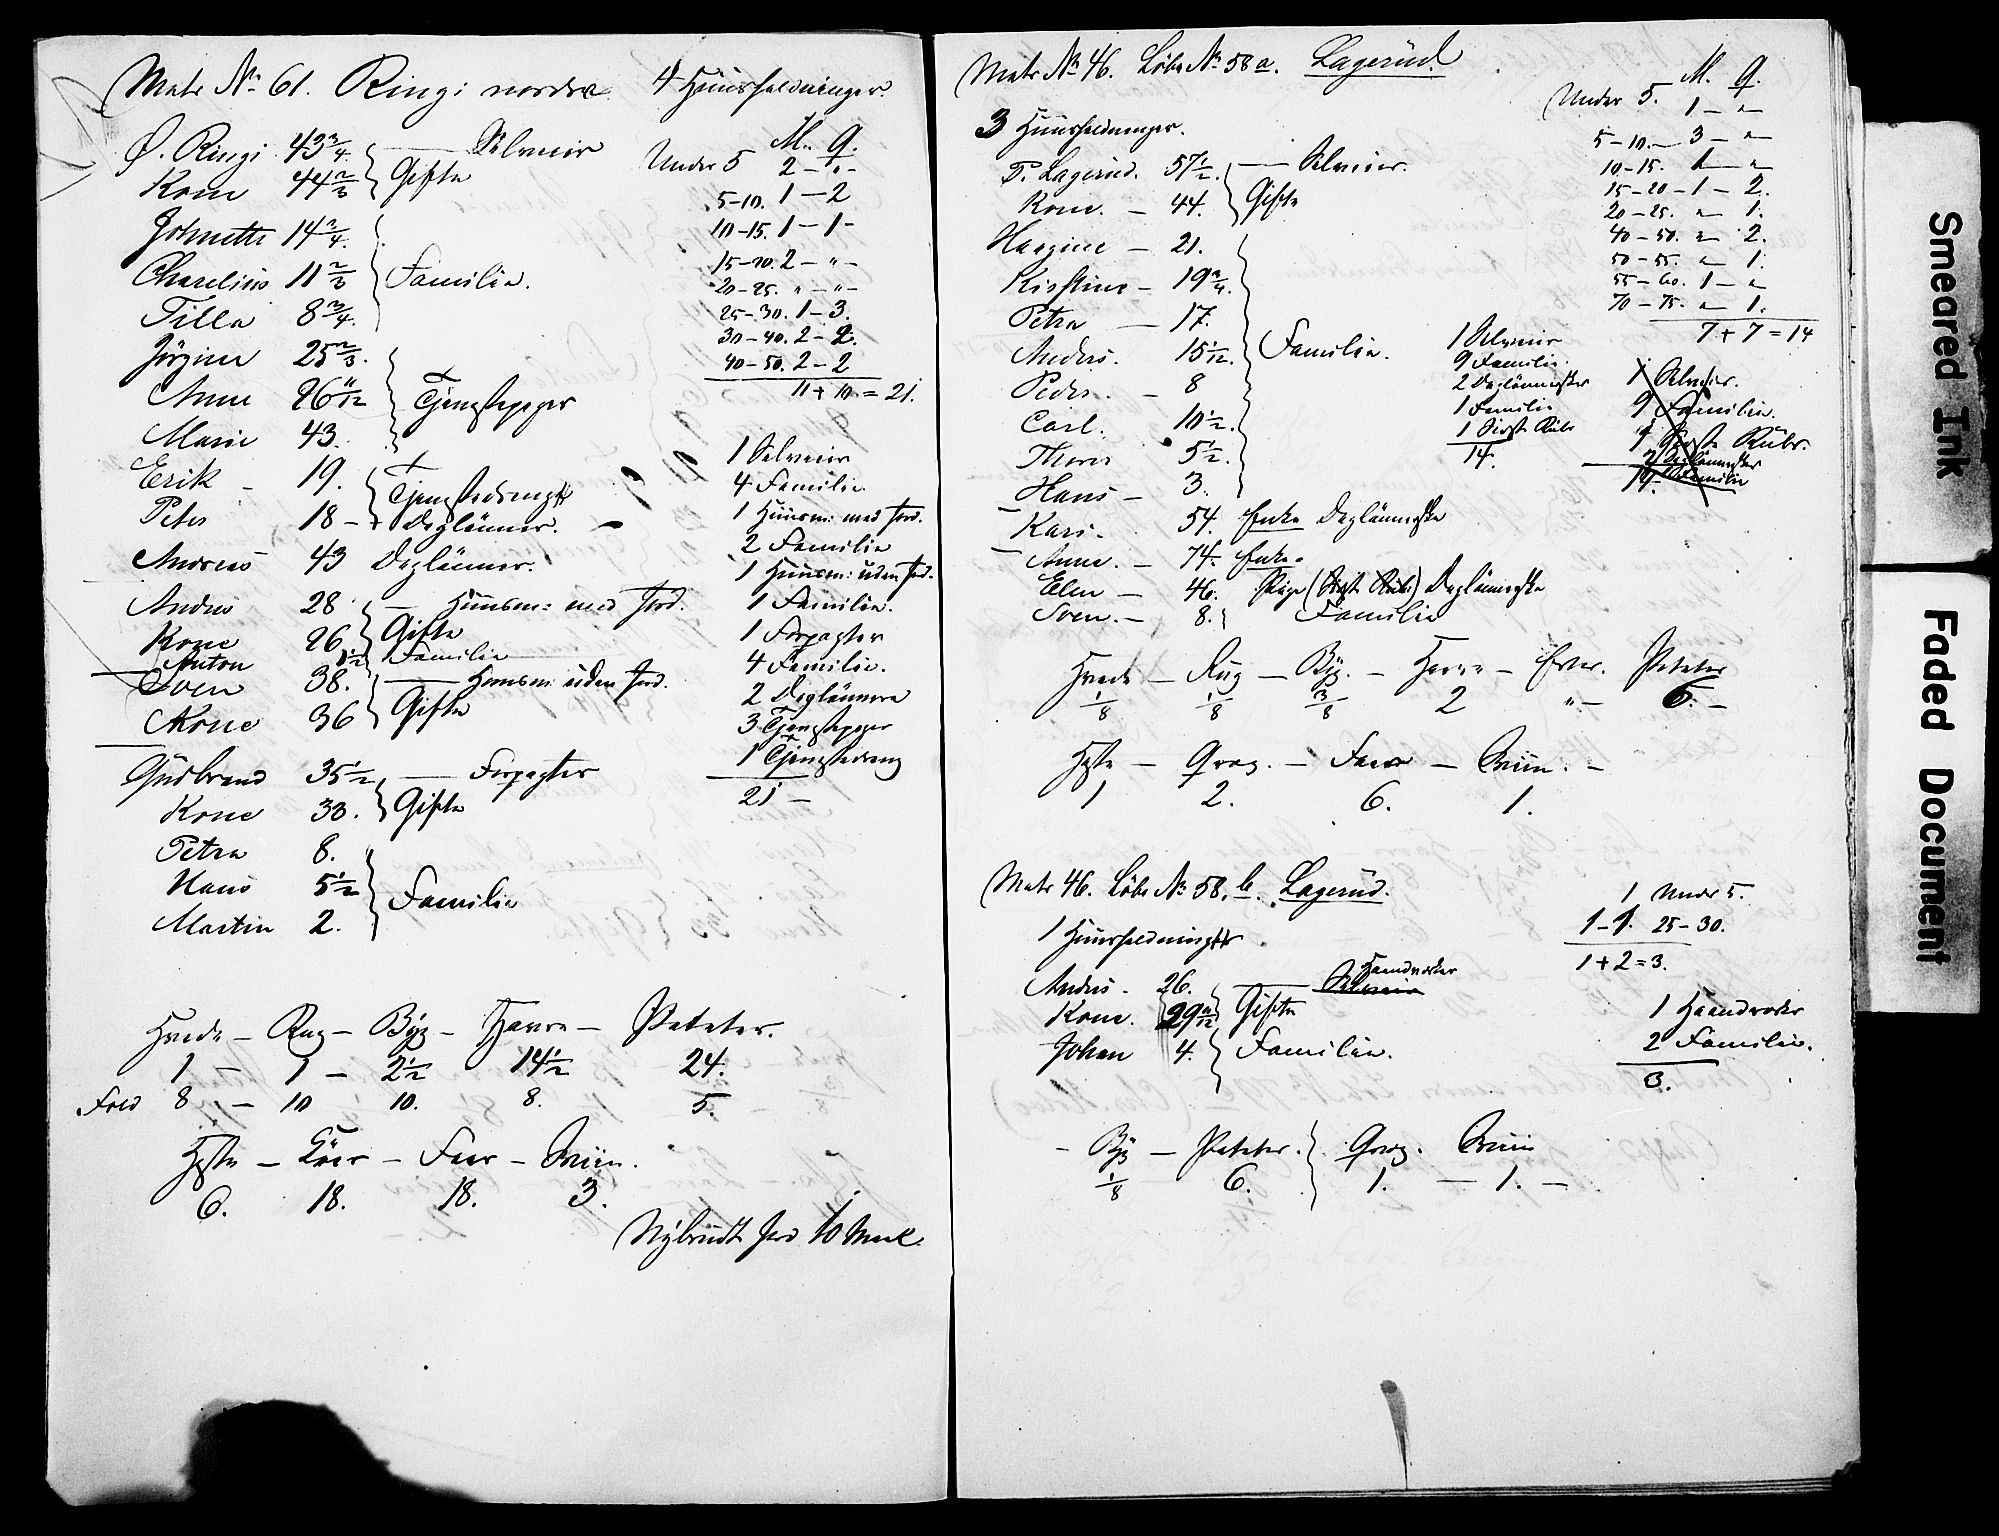 Matr No 61. Ringi nordre 4 Huusholdninger.
M. Q.
Ø. Ringi 43 3/4 — Selveier
Kone 44 2/3 Gifte
Johnette 14 3/4
Charelius 11 2/3 Familie.
Tilla 8 3/4
Jörgine 25 2/3
Anne 26 11/12 Tjenestepiger
Marie 43.
Erik — 19. Tjenestedreng
Peter 18 — Daglönner.
Andreas 43 Daglönner.
Andres 28 — Huusm: med Jord.
Kone 26 Gifte
Anton 1 1/2 Familie
Sven 38. — Huusm: uden Jord.
Kone 36 Gifte
Gudbrand 35 1/2 — Forpagter
Kone 33. Gifte
Petra 8.
Hans 5 1/2 Familie
Martin 2.
Under 5 2 — " —
5-10. 1 — 2
10-15. 1 — 1 —
15-20. 2 — " —
20-25. " — " —
25-30. 1 — 3.
30-40. 2 — 2.
40-50. 2 — 2
11 + 10 = 21.
1 Selveier
4 Familie
1 Huusm: med Jord.
2 Familie
1 Huusm: uden Jord.
1 Familie.
1 Forpagter
4 Familie.
2 Daglönnere
3 Tjenestepiger
1 Tjenestedreng
21 —
Hvede — Rug — Byg — Havre — Poteter.
1 — 1 — 2 1/2 14 1/2 24.
Fold 8 — 10 10. 8. 5.
Heste — Köer — Faar — Sviin.
6. 18. 18. 3.
Nybrudt Jord 10 Maal
Matr No 46. Löbe No 58 a. Lagerud.
3 Huusholdninger.
P. Lagerud. 57 1/2. — Selveier.
Kone. — 44. Gifte
Hargine — 21.
Kirstine — 19 3/4.
Petra — 17.
Anders. 15 1/12. Familie.
Peder. — 8
Carl. 10 1/2.
Thorer 5 1/2.
Hans — 3.
Kari. 54. Enke Daglönnerske
Anne. — 74. Enke.
Elen — 46. Pige (Sidste Rubr) Daglönnerske
Sven. — 8. Familie
M. Q.
Under 5. 1 — " —
5-10. — 3 — " —
10-15. 1 — " —
15-20 — 1 — 2.
20-25. " — 1.
40-50. " — 2.
50-55. " — 1.
55-60. 1 — " —
70-75. " — 1.
7 + 7 = 14
1 Selveier
9 Familie.
2 Daglönnerske
1 Familie
1 Sidste Rubr
14.
1 Selveier.
9 Familie.
1 Sidste Rubr.
2 Daglönnerske
1 Familie
14.
Hvede — Rug — Byg. — Havre — Erter. Poteter
1/8 1/8 3/8 2 " — 6. —
Heste — Qvæg. — Faar — Sviin. —
1 2. 6. 1.
Matr 46. Löbe No 58. b. Lagerud.
1 Huusholdning
Andres. 26. — Selveier Haandværker
Kone. 29 Gifte
Johan 4. Familie.
1 Under 5.
1 — 1. 25-30.
1 + 2 = 3.
1 Haandværker
2 Familie.
3.
— Byg — Poteter. Qvæg. Sviin
1/8 6. 1. — 1. —
Smeared Ink
Faded Document